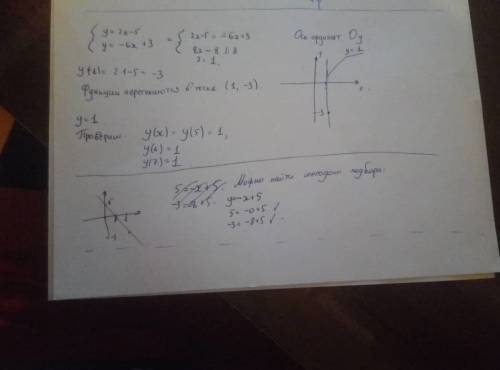 { y = 2x-5
{ y = -6x+3
= { 2x-5 = -6x+3
8x = 8 | :8
x = 1
y(1) = 2·1-5 = -3
Функции пересекаются в точке (1, -3).
Ось ординат Oy
y=1
-3
y=1
Проверим: y(x) = y(5) = 1,
y(6) = 1
y(7) = 1
5 = -x+5. Можно найти методом подбора:
-3 = -8+5. y=-x+5
5 = -0+5 ✓
-3 = -8+5 ✓